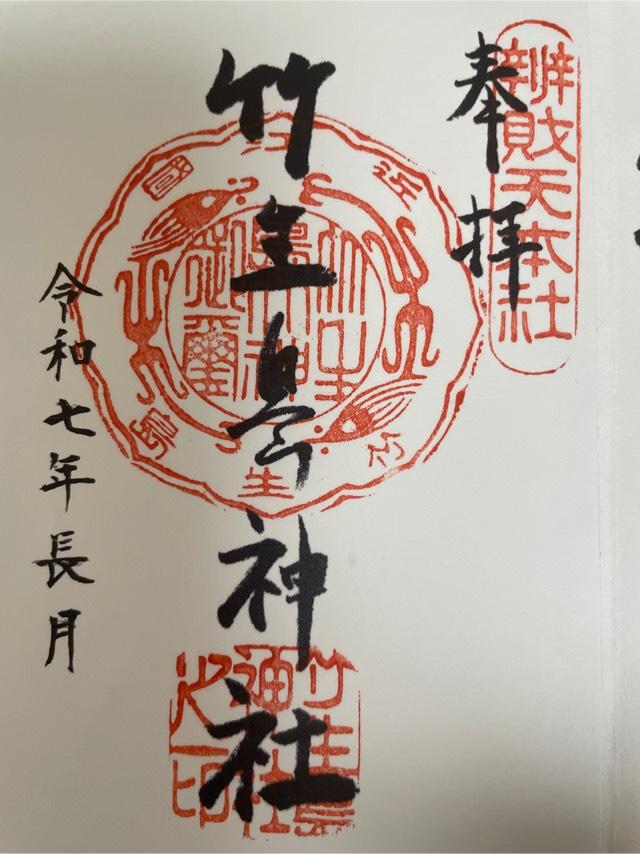 辨財天本社
奉拝
竹生島神社
竹生島神社之印
令和七年長月